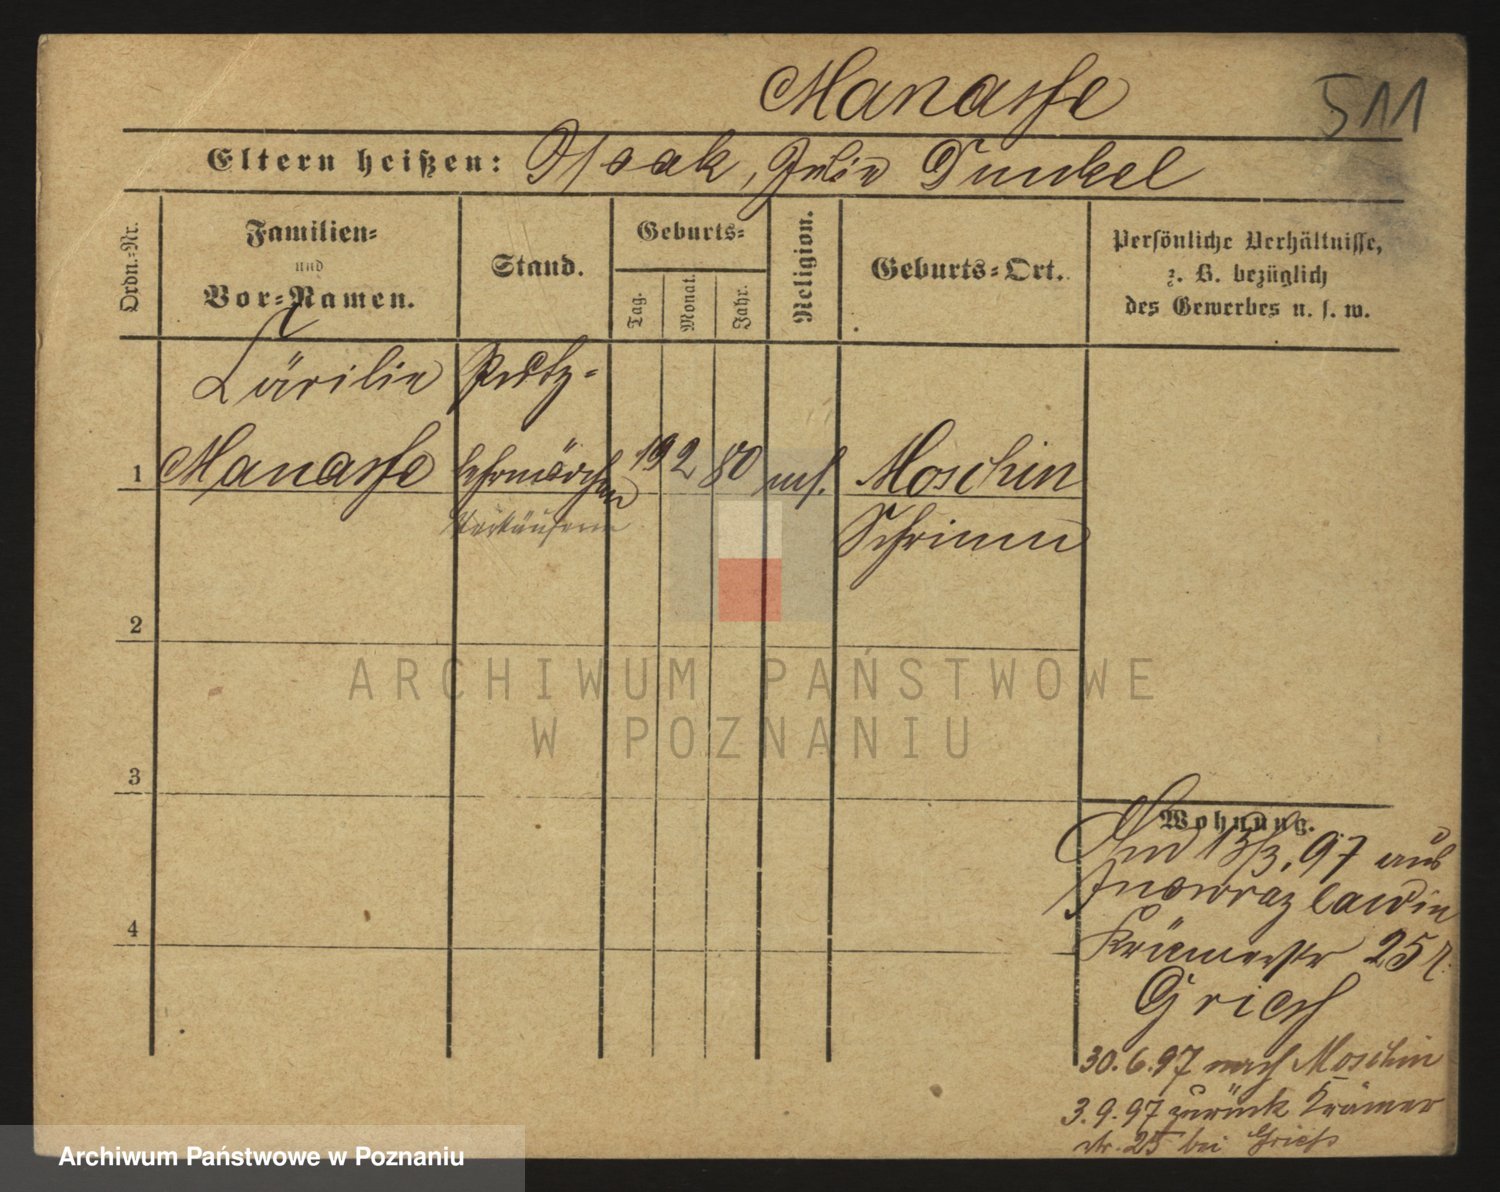 Manasse
511
Eltern heißen: Isaak, Julie Dunkel
Ordn.-Nr.
Familien-
und
Vor-Namen.
Stand.
Geburts-
Tag.
Monat.
Jahr.
Religion.
Geburts-Ort.
Persönliche Verhältnisse,
z. B. bezüglich
des Gewerbes u. s. w.
Cäcilie
Manasse
Putz-
lehrmädchen
Verkäuferin
1
19 2 80
mos.
Moschin
Schrimm
2
3
4
Wohnung.
13/3. 97 aus
Inowrazlaw in
Krämerstr 25
Griess
30.6.97 nach Moschin
3.9.97 zurück Krämer
str. 25 bei Griess
ARCHIWUM PAŃSTWOWE
W POZNANIU
Archiwum Państwowe w Poznaniu